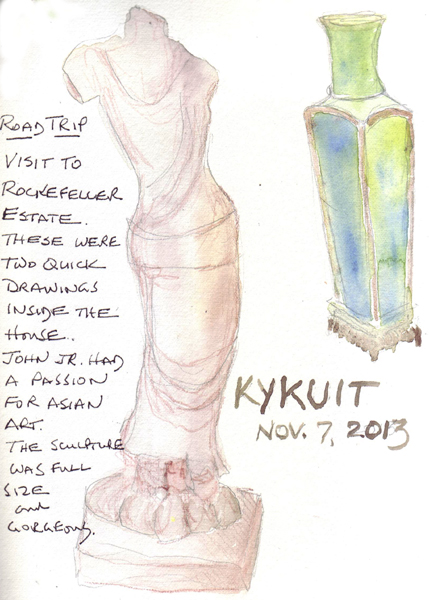 ROAD TRIP
VISIT TO
ROCKEFELLER
ESTATE.
THESE WERE
TWO QUICK
DRAWINGS
INSIDE THE
HOUSE.
JOHN JR. HAD
A PASSION
FOR ASIAN
ART.
THE SCULPTURE
WAS FULL
SIZE
and
GORGEOUS.
KYKUIT
NOV. 7, 2013